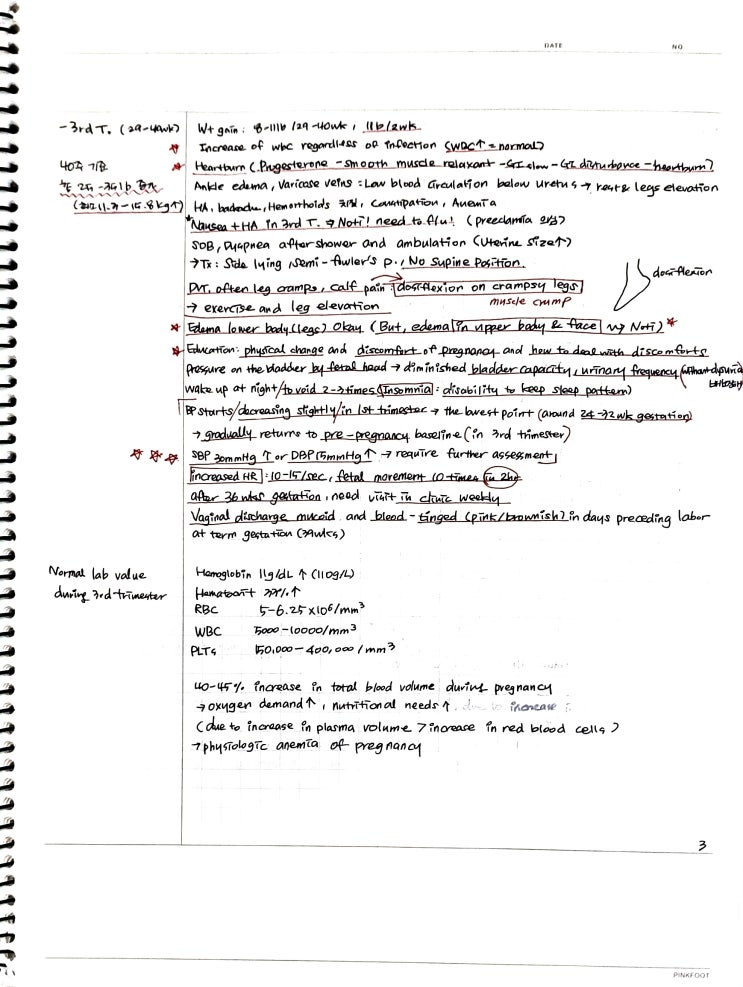 DATE NO
-3rd T. (29-40wk) Wt gain : 8-11lb/29-40wk, 1lb/2wk
Increase of wbc regardless of infection (WBC↑ = normal)
40주 기준 Heartburn (Progesterone - smooth muscle relaxant - GI slow - GI disturbance - heartburn)
총 25-35lb 증가 Ankle edema, Varicose veins : Low blood circulation below uretus → rest & legs elevation
(11.3-15.8kg↑) HA, backache, Hemorrhoids 치질, Constipation, Anemia
*Nausea + HA in 3rd T. → Noti! need to f/u! (preeclamia 의심)
SOB, Dyspnea after shower and ambulation (Uterine size↑)
→ Tx : Side lying, semi-fowler's p., No Supine Position.
DVT, often leg cramps, calf pain dosiflexion on crampsy legs dosiflexion
→ exercise and leg elevation muscle cramp
Edema lower body (legs) Okay (But, edema in upper body & face → Noti)
Education: physical change and discomfort of pregnancy and how to deal with discomforts
Pressure on the bladder by fetal head → diminished bladder capacity, urinary frequency (without dysuria
wake up at night/to void 2-3times (Insomnia : disability to keep sleep pattern)
BP starts/decreasing slightly/in 1st trimester → the lowest point (around 24-32wk gestation)
→ gradually returns to pre-pregnancy baseline (in 3rd trimester)
SBP 30mmHg ↑ or DBP 15mmHg ↑ → require further assessment
increased HR : 10-15/sec, fetal movement 10 times in 2hr
after 36wks gestation, need visit in clinic weekly
Vaginal discharge mucoid and blood-tinged (pink/brownish) in days preceding labor
at term gestation (39wks)
Normal lab value Hemoglobin 11g/dL ↑ (110g/L)
during 3rd trimester Hematocrit 33%↑
RBC 5-6.25 x10⁶/mm³
WBC 5000-10000/mm³
PLTs 150,000-400,000/mm³
40-45% increase in total blood volume during pregnancy
→ oxygen demand↑, nutritional needs↑ due to increase
(due to increase in plasma volume > increase in red blood cells)
→ physiologic anemia of pregnancy
3
PINKFOOT